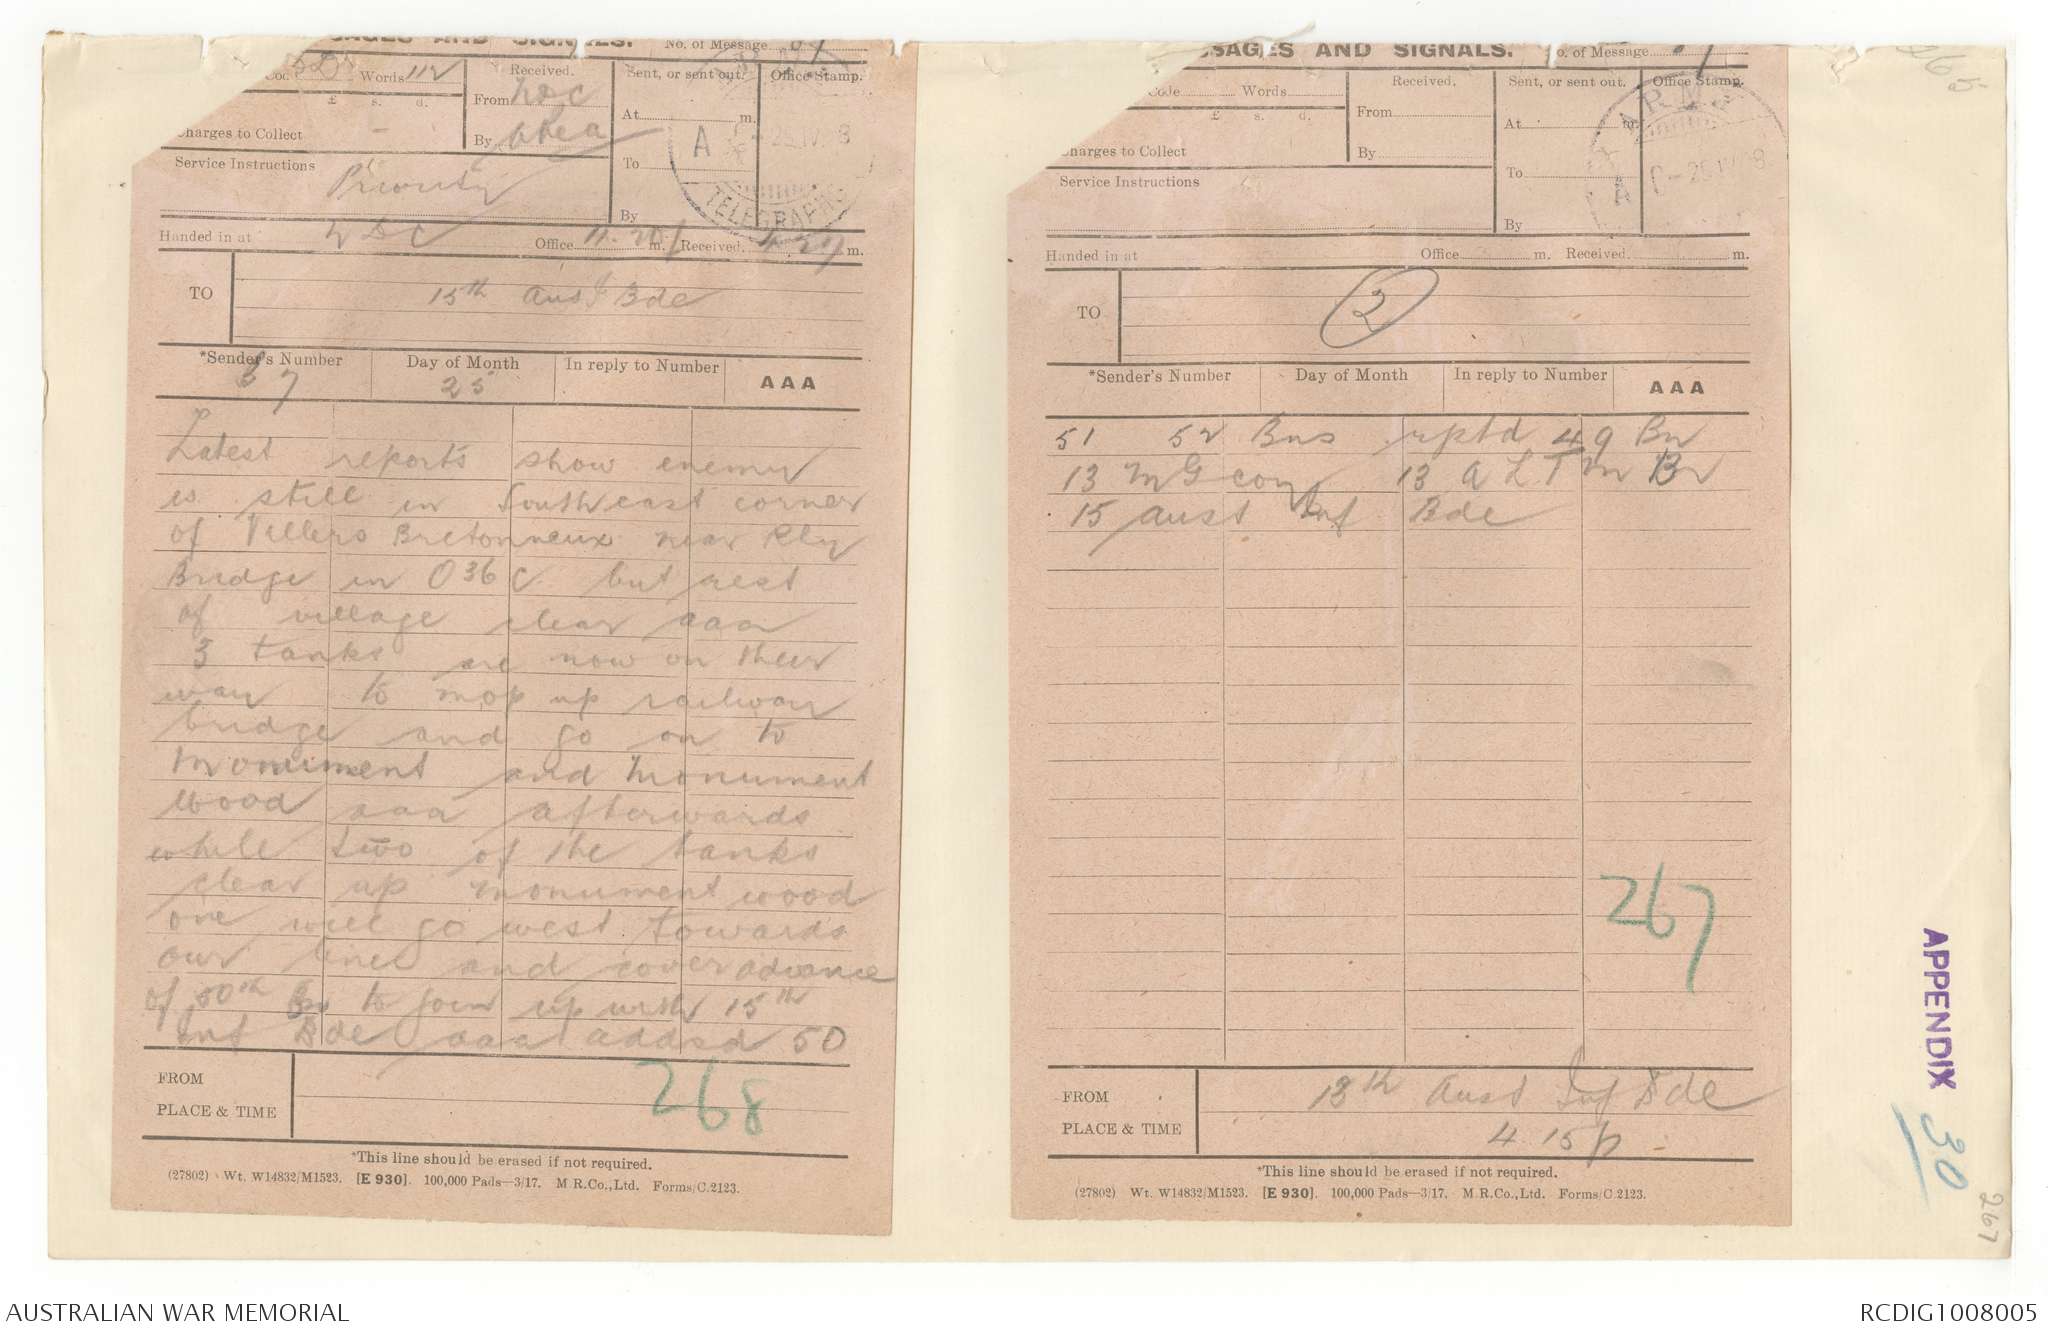 AGES AND SIGNALS.
No. of Message
Words 112
Received.
From
By
Sent, or sent out.
At m.
To
By
Office Stamp.
£ s. d.
Charges to Collect
Service Instructions
Priority
A
25.IV.
TELEGRAPHS
Handed in at
Office m. Received. m.
TO
15th Aust Bde
*Sender's Number
Day of Month
In reply to Number
AAA
25
Latest reports show enemy
is still in South east corner
of Villers Bretonneux near Rly
Bridge in O 36 C but rest
of village clear aaa
3 tanks are now on their
way to mop up railway
bridge and go on to
Monument and Monument
Wood aaa afterwards
while two of the tanks
clear up monument wood
one will go west towards
our lines and cover advance
of 50th Bn to join up with 15th
Inf Bde aaa addsd 50
FROM
PLACE & TIME
268
*This line should be erased if not required.
(27802) Wt. W14832/M1523. [E 930]. 100,000 Pads—3/17. M R.Co.,Ltd. Forms/C.2123.
SSAGES AND SIGNALS.
No. of Message
Code Words
Received.
From
By
Sent, or sent out.
At m.
To
By
Office Stamp.
£ s. d.
Charges to Collect
Service Instructions
ARMY
A
Handed in at
Office m. Received. m.
TO
2
*Sender's Number
Day of Month
In reply to Number
AAA
51 52 Bns rptd 49 Bn
13 MG coy 13 A L T M Br
15 Aust Inf Bde
267
FROM
PLACE & TIME
13th Aust Inf Bde
4 15 p
*This line should be erased if not required.
(27802) Wt. W14832/M1523. [E 930]. 100,000 Pads—3/17. M.R.Co.,Ltd. Forms/C 2123.
APPENDIX
30
267
AUSTRALIAN WAR MEMORIAL
RCDIG1008005